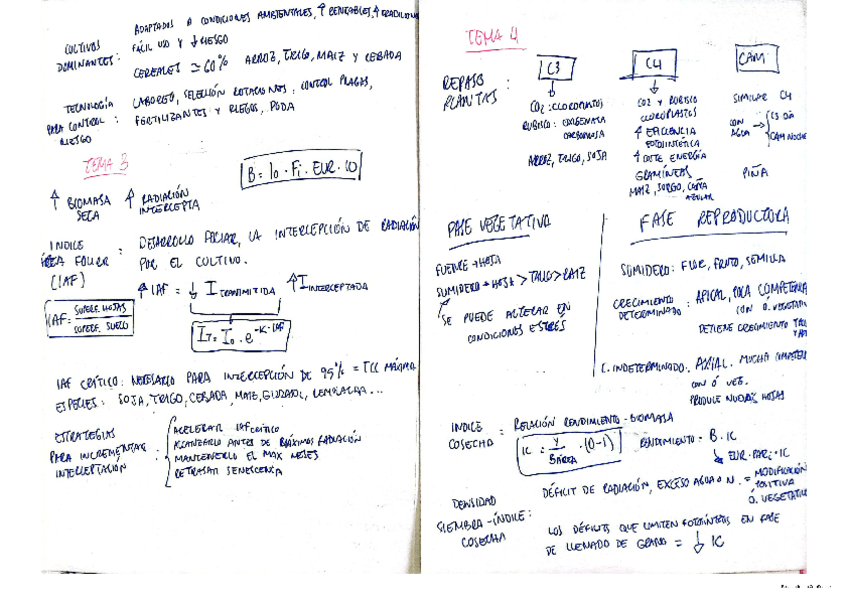 CULTIVOS DOMINANTES:
ADAPTADOS A CONDICIONES AMBIENTALES, ↑ RENTABLES, ↑
FÁCIL USO Y ↓ RIESGO
CEREALES ≃ 60% ARROZ, TRIGO, MAIZ Y CEBADA
TECNOLOGÍA PARA CONTROL RIESGO:
LABOREO, SELECCIÓN ROTACIONES, CONTROL PLAGAS,
FERTILIZANTES Y RIEGOS, PODA
TEMA 3
B = Io · Fi · EUR · 10
↑ BIOMASA SECA ↑ RADIACIÓN INTERCEPTA
INDICE ÁREA FOLIAR (IAF):
DESARROLLO FOLIAR, LA INTERCEPCIÓN DE RADIACIÓN
POR EL CULTIVO.
↑ IAF = ↓ I TRANSMITIDA ↑ I INTERCEPTADA
IAF = SUPERF. HOJAS / SUPERF. SUELO
IT = Io · e^-K·IAF
IAF CRÍTICO: NECESARIO PARA INTERCEPCIÓN DE 95% = TCC MÁXIMA
ESPECIES: SOJA, TRIGO, CEBADA, MAIZ, GIRASOL, REMOLACHA...
ESTRATEGIAS PARA INCREMENTAR INTERCEPTACIÓN:
ACELERAR IAF CRÍTICO
ALCANZARLO ANTES DE MÁXIMOS RADIACIÓN
MANTENERLO EL MAX MESES
RETRASAR SENESCENCIA
TEMA 4
REPASO PLANTAS:
C3
CO2: CLOROPLASTOS
RUBISCO: OXIGENASA
CARBOXILASA
ARROZ, TRIGO, SOJA
C4
CO2 Y RUBISCO
CLOROPLASTOS
↑ EFICIENCIA
FOTOSINTÉTICA
↑ COSTE ENERGÍA
GRAMÍNEAS
MAIZ, SORGO, CAÑA
AZUCAR
CAM
SIMILAR C4
CON AGUA → C3 DÍA
CAM NOCHE
PIÑA
FASE VEGETATIVA
FUENTE → HOJA
SUMIDERO → HOJA > TALLO > RAIZ
SE PUEDE ALTERAR EN
CONDICIONES ESTRÉS
FASE REPRODUCTORA
SUMIDERO: FLOR, FRUTO, SEMILLA
CRECIMIENTO DETERMINADO: APICAL, POCA COMPETENCIA
CON O. VEGETA
DETIENE CRECIMIENTO
C. INDETERMINADO. AXIAL. MUCHA
CON O VEG.
PRODUCE NUEVAS HOJAS
INDICE COSECHA = RELACIÓN RENDIMIENTO-BIOMASA
IC = Y / BAÉREA · (0-1)
RENDIMIENTO = B · IC
↳ EUR · PARi · IC
DENSIDAD SIEMBRA-ÍNDICE COSECHA:
DÉFICIT DE RADIACIÓN, EXCESO AGUA O N. = MODIFICACIÓN
POSITIVA
O. VEGETATIV
LOS DÉFICITS QUE LIMITEN FOTOSÍNTESIS EN FASE
DE LLENADO DE GRANO = ↓ IC